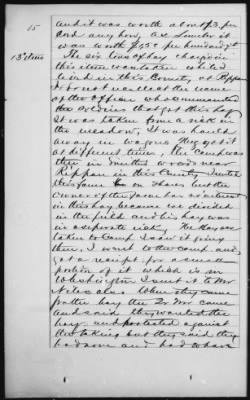 15
and it was worth about $73 per
cord any how, as Lumber it
was worth $2.50 per hundred ft
13th Item The six tons of Hay charged in
this item was taken while I
lived in this County, at Rippon
I do not recollect the name
of the Officer who commanded
the Soldiers that got this Hay
It was taken from a rick in
the meadow, It was hauled
away in wagons They got it
at different times, The Camp was
then in Smith's woods near
Rippon in this County, I rented
this farm on shares but the
owner of the farm has no interest
in this hay because we divided
in the field and his hay was
in a seperate rick, The Hay was
taken to Camp I saw it going
there, I went to the camp and
got a receipt for a small
portion of it which is in
Washington I sent it to Mr
When they came
for the hay the Qr Mr came
and said they wanted the
hay and I protested against
the taking but they said they
had none and had to have